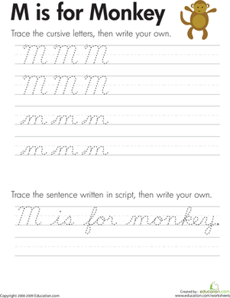 M is for Monkey
Trace the cursive letters, then write your own.
M M M
M M M
m m m
m m m
Trace the sentence written in script, then write your own.
M is for monkey.
Created by
education.com
Copyright 2008-2009 Education.com
www.education.com/worksheets